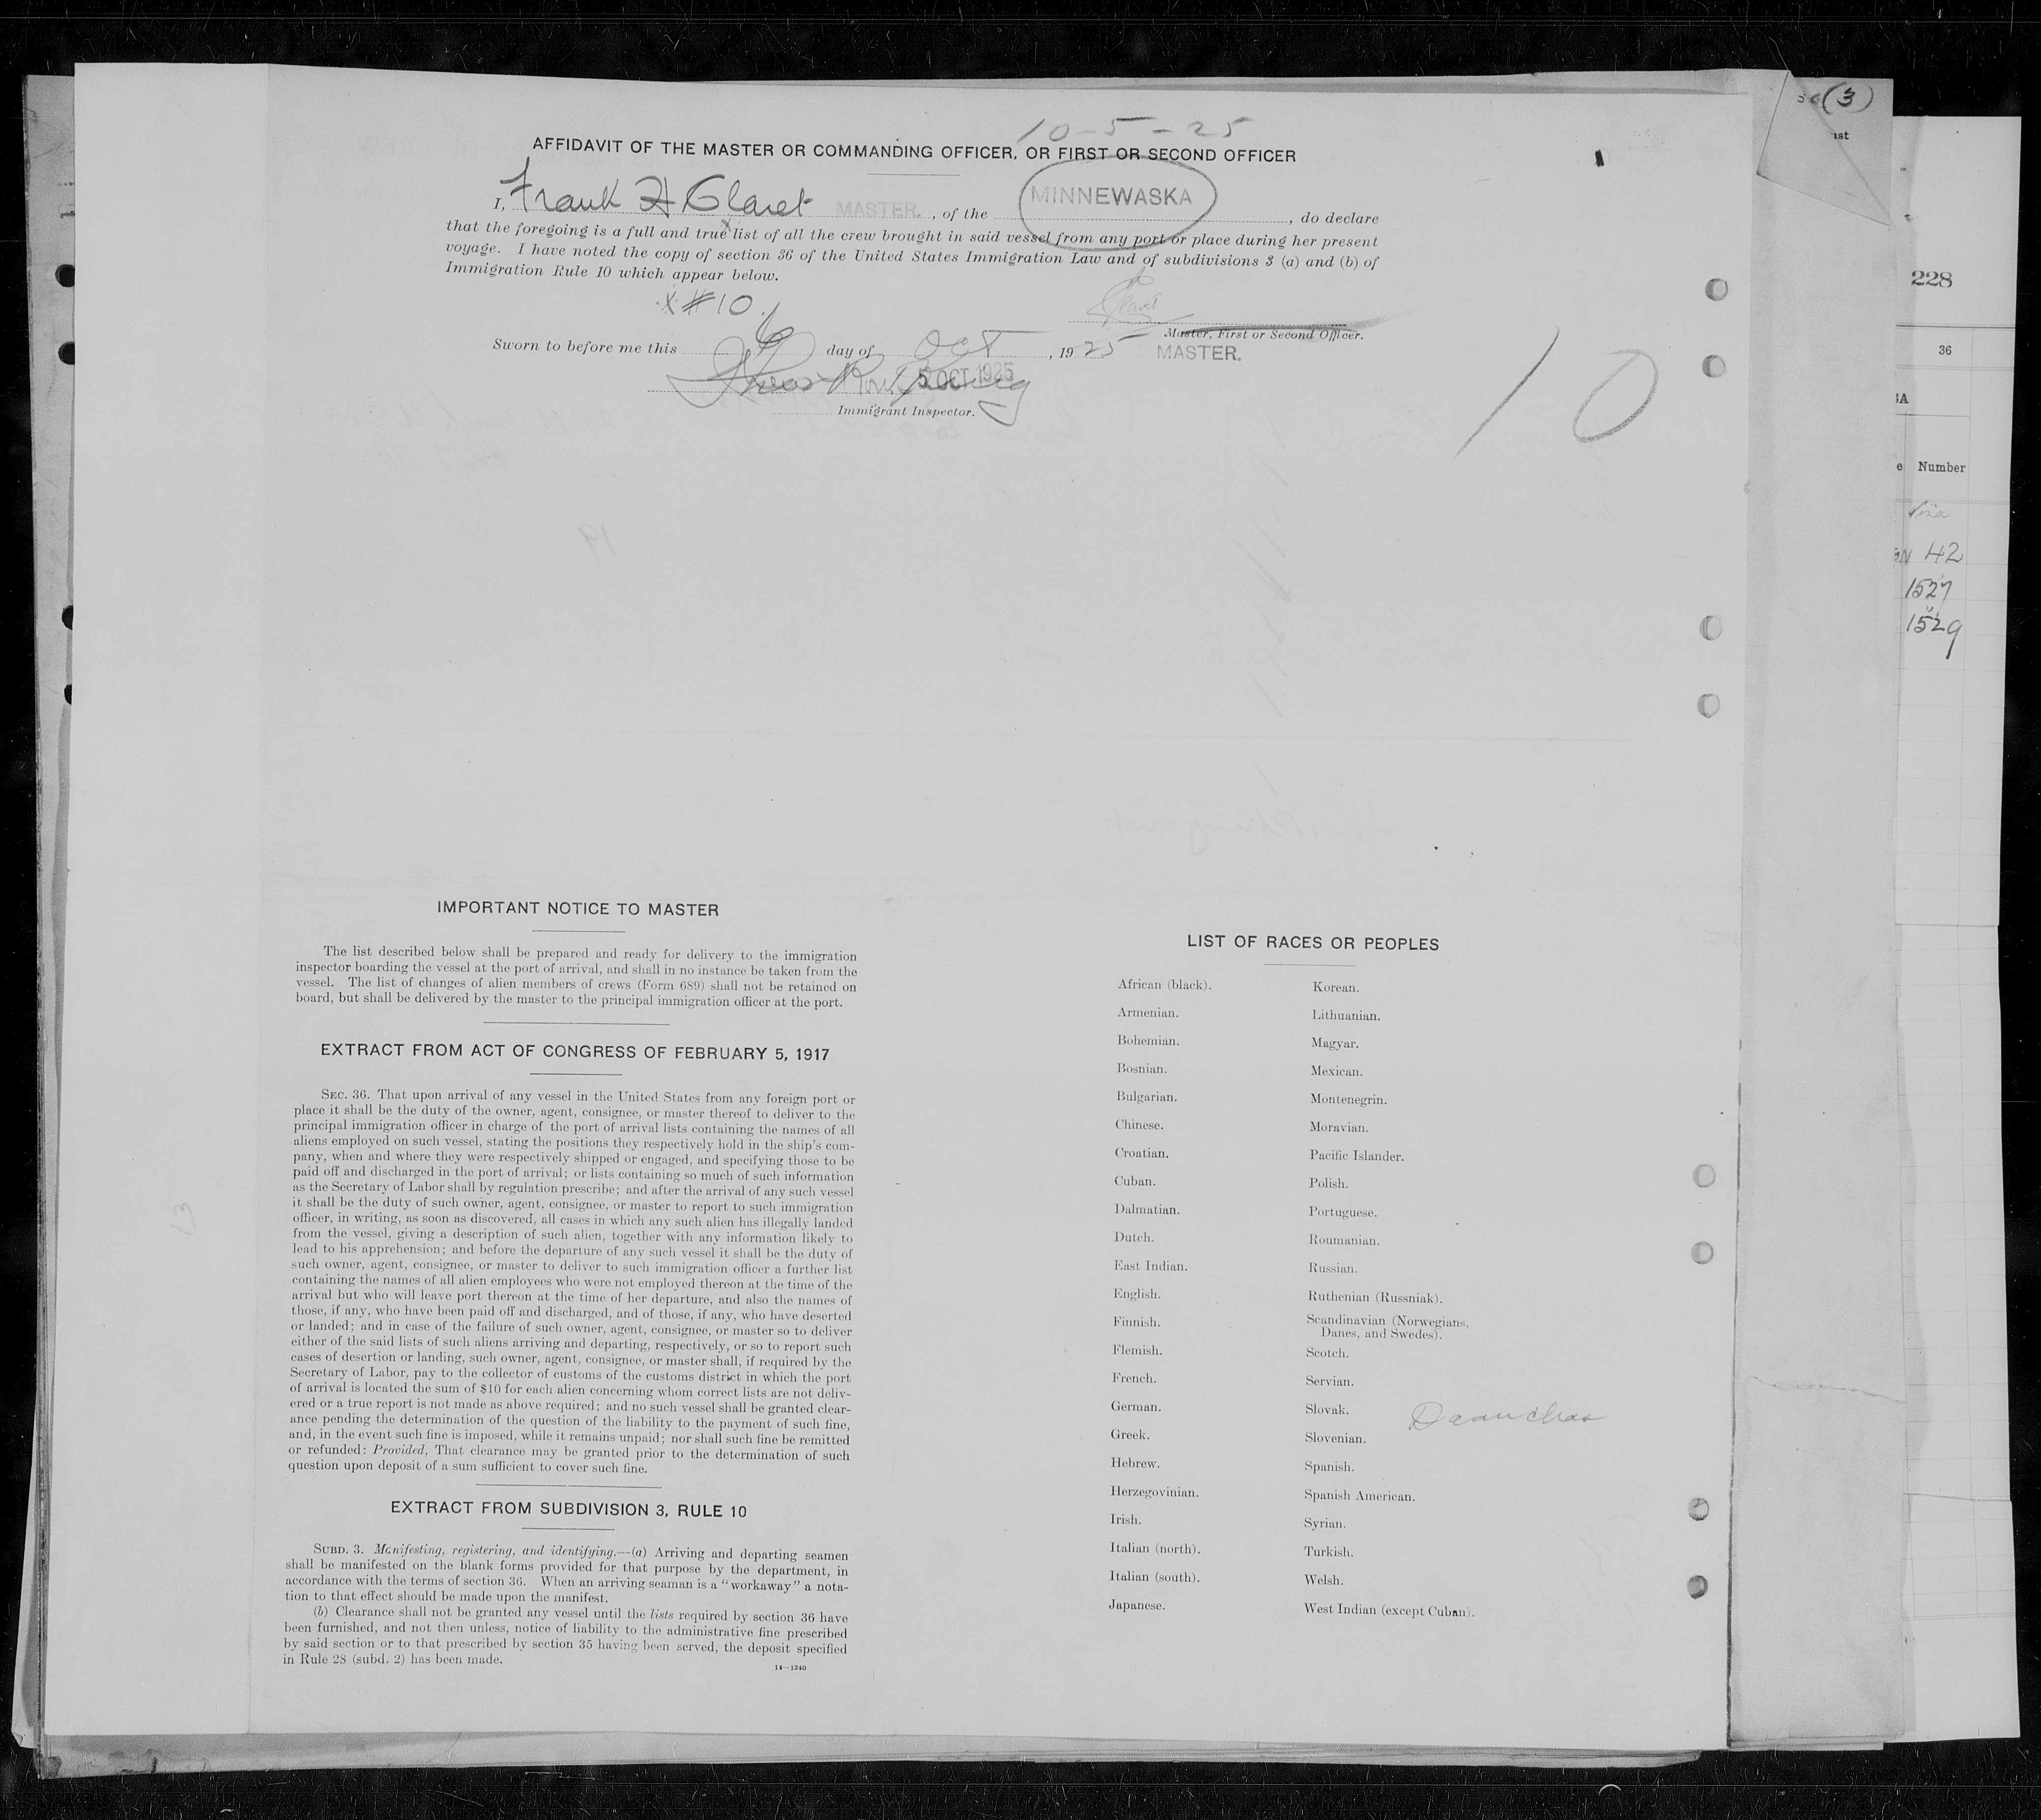 10-5-25
AFFIDAVIT OF THE MASTER OR COMMANDING OFFICER, OR FIRST OR SECOND OFFICER
I, Frank H Claret MASTER. , of the MINNEWASKA , do declare
that the foregoing is a full and true list of all the crew brought in said vessel from any port or place during her present
voyage. I have noted the copy of section 36 of the United States Immigration Law and of subdivisions 3 (a) and (b) of
Immigration Rule 10 which appear below.
x #10
Claret
Master, First or Second Officer.
Sworn to before me this 6 day of Oct , 1925 MASTER.
5 OCT 1925
Immigrant Inspector.
10
IMPORTANT NOTICE TO MASTER
The list described below shall be prepared and ready for delivery to the immigration
inspector boarding the vessel at the port of arrival, and shall in no instance be taken from the
vessel. The list of changes of alien members of crews (Form 689) shall not be retained on
board, but shall be delivered by the master to the principal immigration officer at the port.
EXTRACT FROM ACT OF CONGRESS OF FEBRUARY 5, 1917
SEC. 36. That upon arrival of any vessel in the United States from any foreign port or
place it shall be the duty of the owner, agent, consignee, or master thereof to deliver to the
principal immigration officer in charge of the port of arrival lists containing the names of all
aliens employed on such vessel, stating the positions they respectively hold in the ship's com-
pany, when and where they were respectively shipped or engaged, and specifying those to be
paid off and discharged in the port of arrival; or lists containing so much of such information
as the Secretary of Labor shall by regulation prescribe; and after the arrival of any such vessel
it shall be the duty of such owner, agent, consignee, or master to report to such immigration
officer, in writing, as soon as discovered, all cases in which any such alien has illegally landed
from the vessel, giving a description of such alien, together with any information likely to
lead to his apprehension; and before the departure of any such vessel it shall be the duty of
such owner, agent, consignee, or master to deliver to such immigration officer a further list
containing the names of all alien employees who were not employed thereon at the time of the
arrival but who will leave port thereon at the time of her departure, and also the names of
those, if any, who have been paid off and discharged, and of those, if any, who have deserted
or landed; and in case of the failure of such owner, agent, consignee, or master so to deliver
either of the said lists of such aliens arriving and departing, respectively, or so to report such
cases of desertion or landing, such owner, agent, consignee, or master shall, if required by the
Secretary of Labor, pay to the collector of customs of the customs district in which the port
of arrival is located the sum of $10 for each alien concerning whom correct lists are not deliv-
ered or a true report is not made as above required; and no such vessel shall be granted clear-
ance pending the determination of the question of the liability to the payment of such fine,
and, in the event such fine is imposed, while it remains unpaid; nor shall such fine be remitted
or refunded: Provided, That clearance may be granted prior to the determination of such
question upon deposit of a sum sufficient to cover such fine.
EXTRACT FROM SUBDIVISION 3, RULE 10
SUBD. 3. Manifesting, registering, and identifying.—(a) Arriving and departing seamen
shall be manifested on the blank forms provided for that purpose by the department, in
accordance with the terms of section 36. When an arriving seaman is a "workaway" a nota-
tion to that effect should be made upon the manifest.
(b) Clearance shall not be granted any vessel until the lists required by section 36 have
been furnished, and not then unless, notice of liability to the administrative fine prescribed
by said section or to that prescribed by section 35 having been served, the deposit specified
in Rule 28 (subd. 2) has been made.
14—1240
LIST OF RACES OR PEOPLES
African (black).
Armenian.
Bohemian.
Bosnian.
Bulgarian.
Chinese.
Croatian.
Cuban.
Dalmatian.
Dutch.
East Indian.
English.
Finnish.
Flemish.
French.
German.
Greek.
Hebrew.
Herzegovinian.
Irish.
Italian (north).
Italian (south).
Japanese.
Korean.
Lithuanian.
Magyar.
Mexican.
Montenegrin.
Moravian.
Pacific Islander.
Polish.
Portuguese.
Roumanian.
Russian.
Ruthenian (Russniak).
Scandinavian (Norwegians,
Danes, and Swedes).
Scotch.
Servian.
Slovak.
Slovenian.
Spanish.
Spanish American.
Syrian.
Turkish.
Welsh.
West Indian (except Cuban).
(3)
228
36
Number
42
1527
1529